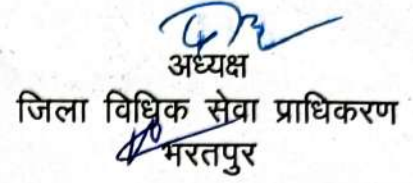 अध्यक्ष
जिला विधिक सेवा प्राधिकरण
भरतपुर